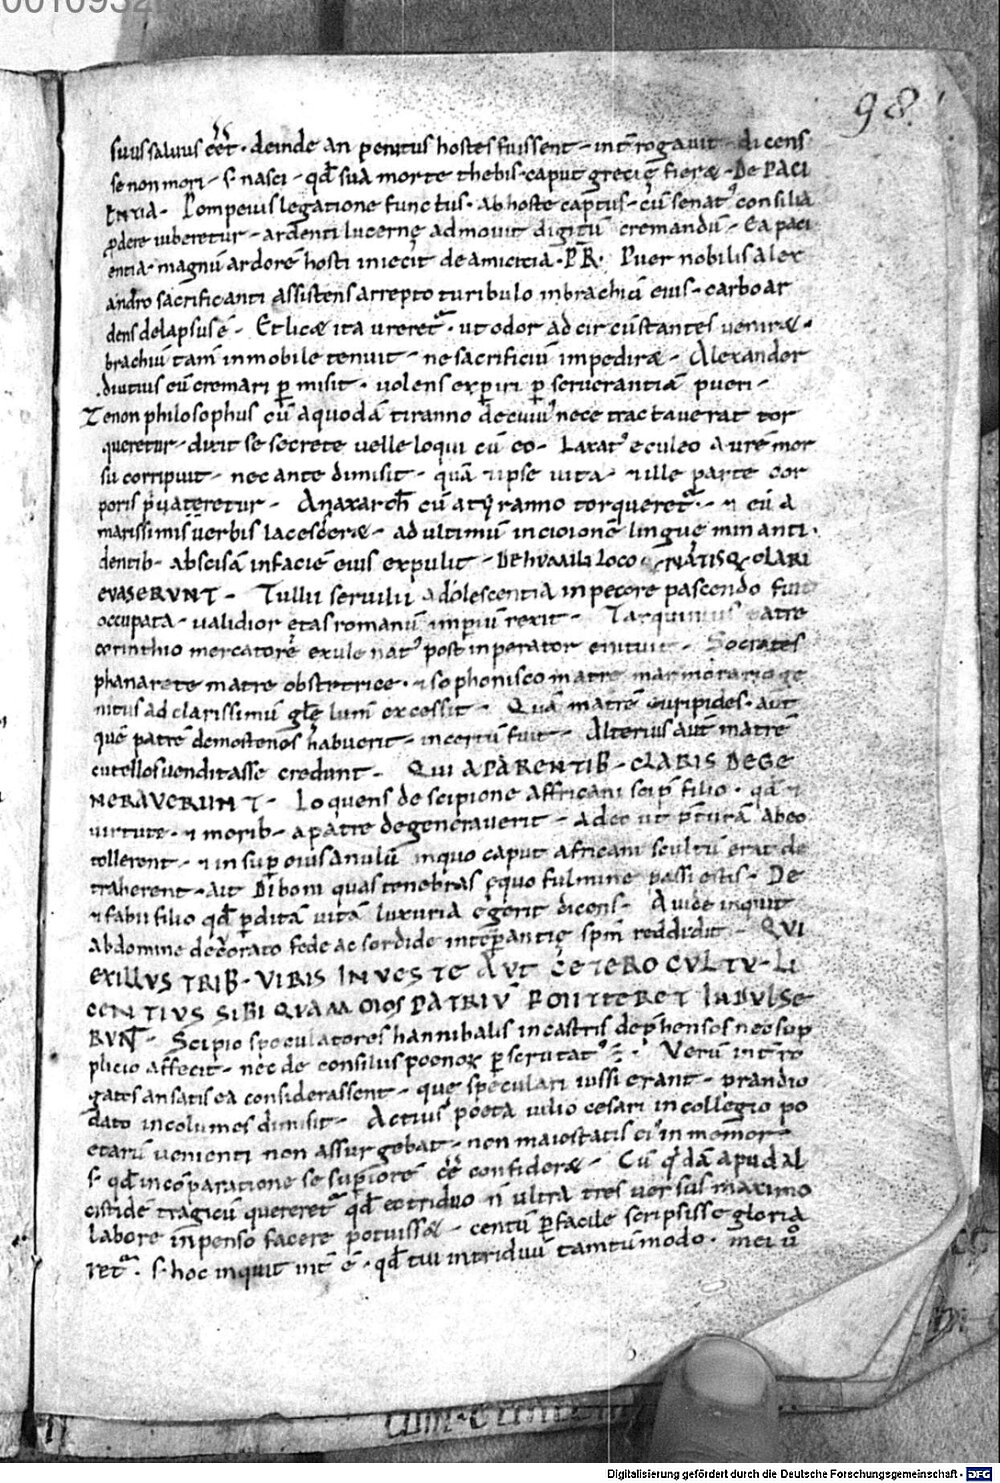 0010932
98.
suus saluus eēt · deinde an penitus hostes fuissent · int̄rogauit · dicens
se non mori · s; nasci · qđ sua morte thebis caput greciȩ fieræ · De PACI
ENTIA · Pompeius legatione functus · ab hoste captus · cū senat᾽ consilia
p̄dere iuberetur · ardenti lucernȩ admouit digitū cremandū · Ea paci
entia · magnū ardorē hosti iniecit de amicitia · P̄R̄ · Puer nobilis alex
andro sacrificanti assistens arrepto turibulo in brachiū eius · carbo ar
dens delapsus ē · Et licæ ita ureret̄ · ut odor ad circūstantes ueniræ ·
brachiū tam̄ inmobile tenuit · ne sacrificiū impediræ · Alexander
diutius eū cremari p̱misit · uolens exp̱iri p̱seruerantiā pueri ·
Zenon philosophus cū a quodā tiranno de cuiu᾽ nece tractauerat tor
queretur · dixit se secrete uelle loqui cū eo · Laxat᾽ eculeo aurē mor
su corripuit · nec ante dimisit · quā & ipse uita · & ille parte cor
poris p̄uateretur · Anaxarch᾽ cū a tyranno torqueret̄ · & eū a
marissimis uerbis lacesceræ · ad ultimū incioionē linguȩ minanti ·
dentib· abscisā in faciē eius expulit · De huMili Loco NATIS Q· CLARI
EVASERVNT · Tullii seruilii adolescentia in pecore pascendo fuit
occupata · ualidior ȩtas romanū imp̱iū rexit · Tarquinius patre
corinthio mercatore exule nat᾽ post inperator enituit · Socrates
phanarete matre obstetrice · & sophonisco matre marmorario ge
nitus ad clarissimū glȩ lum̄ excessit · Quā matrē euripides · aut
quē patrē demostenes habuerit · incertū fuit · Alterius aut̄ matrē
cutellos uenditasse credunt · QUI A PARENTIB· CLARIS DEGE
NERAVERUNT · Loquens de scipione affricani scip̱ filio · qđ &
uirtute · & morib· a patre degenerauerit · adeo ut p̄turā ab eo
tollerent · & insup̱ eius anulū in quo caput africani scultū erat de
traherent · Ait Dii boni quas tenebras ȩ quo fulmine passi estis · De
& fabii filio qđ p̱ditā uitā luxuria egerit dicens · Auide inquit
abdomine deuorato fede ac sordide intēp̱antiȩ spm̄ reddidit · QUI
EX ILLUSTRIB· VIRIS IN VESTE AUT CETERO CULTU · LI
CENTIUS SIBI QUAM MOS PATRIUˢ P̄MITTERET INDULSE
RUN̄ · Scipio speculatores hannibalis in castris dep̄hensos nec sup
plicio affecit · nec de consiliis poenoꝝ p̱scrutat᾽ ē · Verū int̄ro
gatis an satis ea considerassent · quȩ speculari iussi erant · prandio
dato incolumes dimisit · Actius poeta iulio cesari in collegio po
etarū uenienti non assurgebat · non maiestatis ei᾽ inmemor ·
s; qđ in cōparatione se sup̱iorē eēē confideræ · Cū qdā apud al
cistidē tragicū quereret̄ qđ eo triduo n̄ ultra tres uersus maximo
labore inpenso facere potuissæ · centū p̱ facile scripsisse gloria
ret̄ · s; hoc inquit int̄ ē · qđ tui in triduū tamtūmodo · mei ū
Digitalisierung gefördert durch die Deutsche Forschungsgemeinschaft - DFG